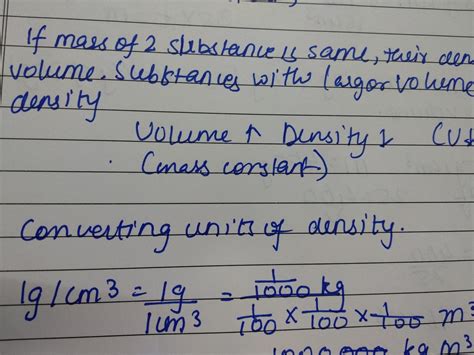 If mass of 2 substance is same, their den
volume. Substances with larger volume
density
Volume ↑ Density ↓ (V↓
(mass constant)
Converting units of density.
1g/cm³ = 1g/1cm³ = 1/1000 kg / 1/100 × 1/100 × 1/100 m³
kg m³